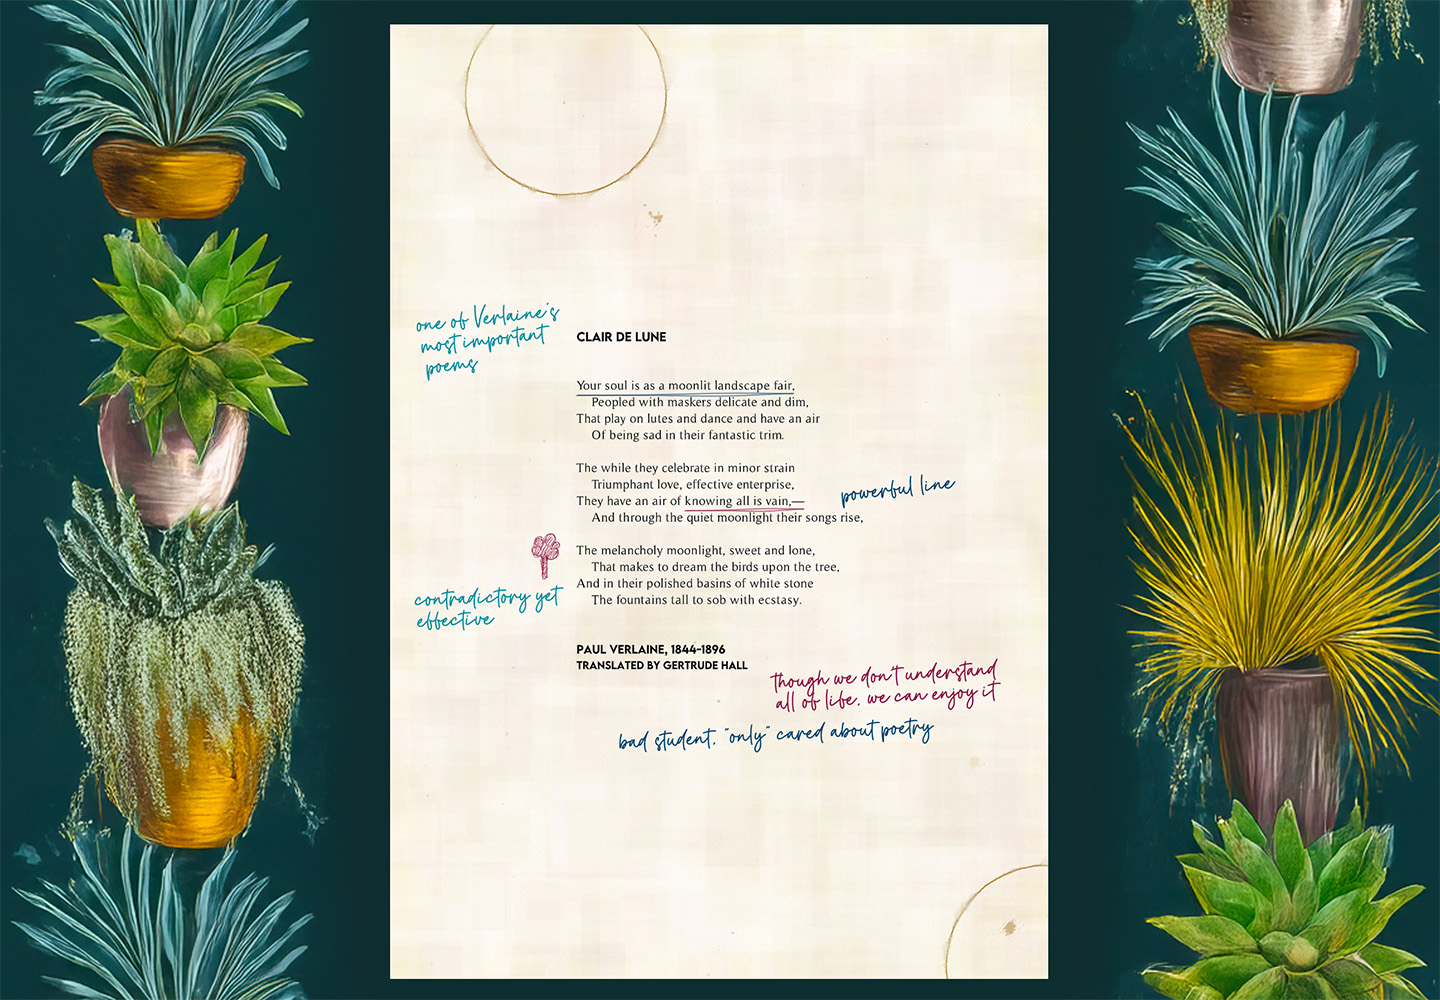 one of Verlaine's
most important
poems
CLAIR DE LUNE
Your soul is as a moonlit landscape fair,
Peopled with maskers delicate and dim,
That play on lutes and dance and have an air
Of being sad in their fantastic trim.
The while they celebrate in minor strain
Triumphant love, effective enterprise,
They have an air of knowing all is vain,—
And through the quiet moonlight their songs rise,
powerful line
The melancholy moonlight, sweet and lone,
That makes to dream the birds upon the tree,
And in their polished basins of white stone
The fountains tall to sob with ecstasy.
contradictory yet
effective
PAUL VERLAINE, 1844-1896
TRANSLATED BY GERTRUDE HALL
though we don't understand
all of life, we can enjoy it
bad student, "only" cared about poetry